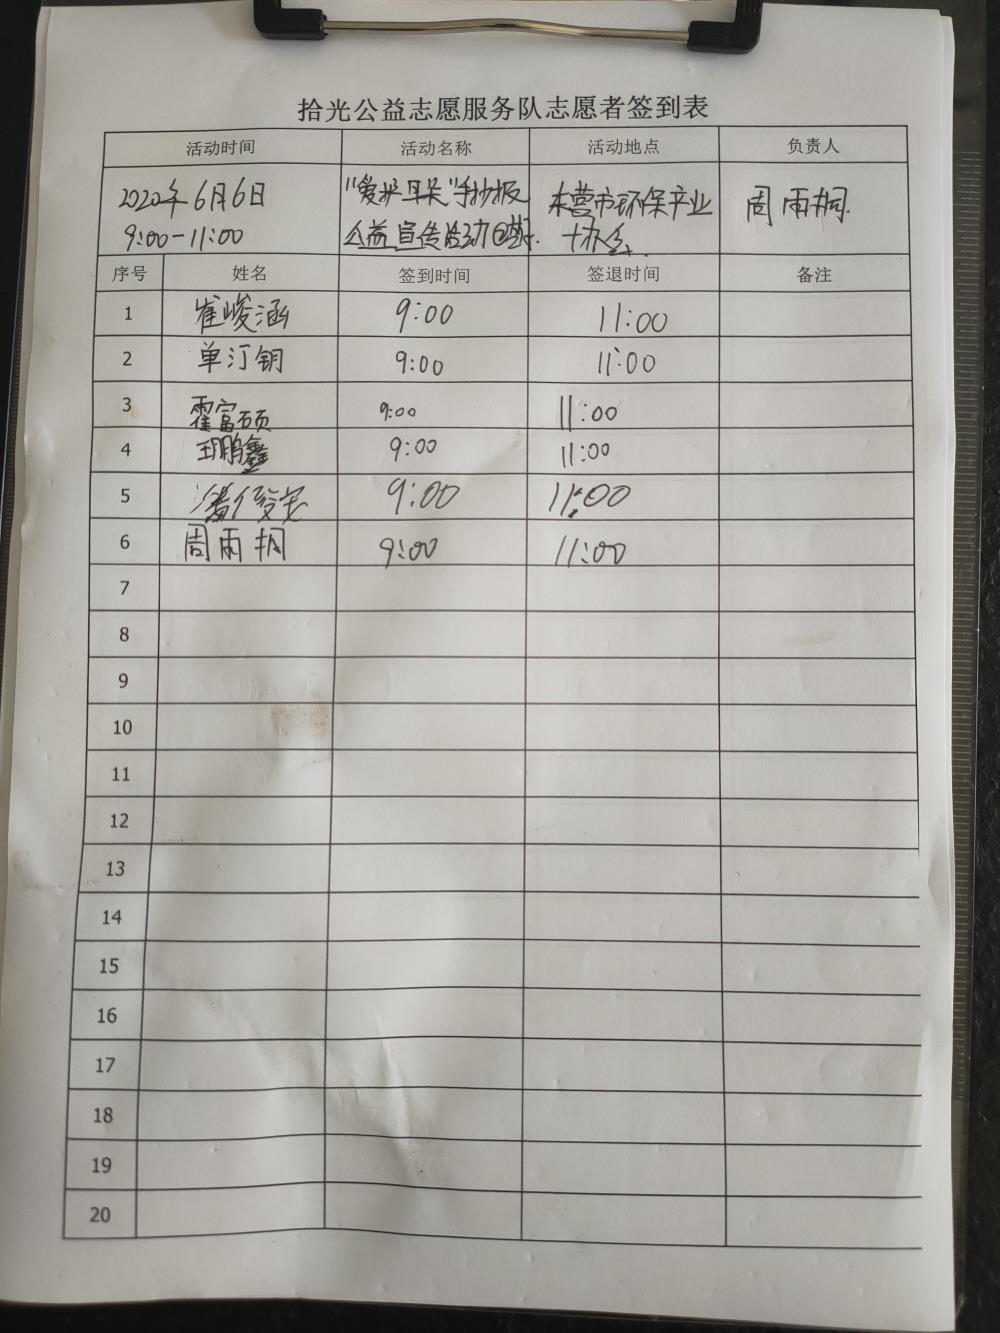 拾光公益志愿服务队志愿者签到表
活动时间 活动名称 活动地点 负责人
2020年6月6日 "爱护耳朵"手抄报 东营市环保产业 周雨桐.
9:00-11:00 公益宣传活动
序号 姓名 签到时间 签退时间 备注
1 崔峻涵 9:00 11:00
2 单汀钥 9:00 11:00
3 霍富硕 9:00 11:00
4 王鹏鑫 9:00 11:00
5 9:00 11:00
6 周雨桐 9:00 11:00
7
8
9
10
11
12
13
14
15
16
17
18
19
20